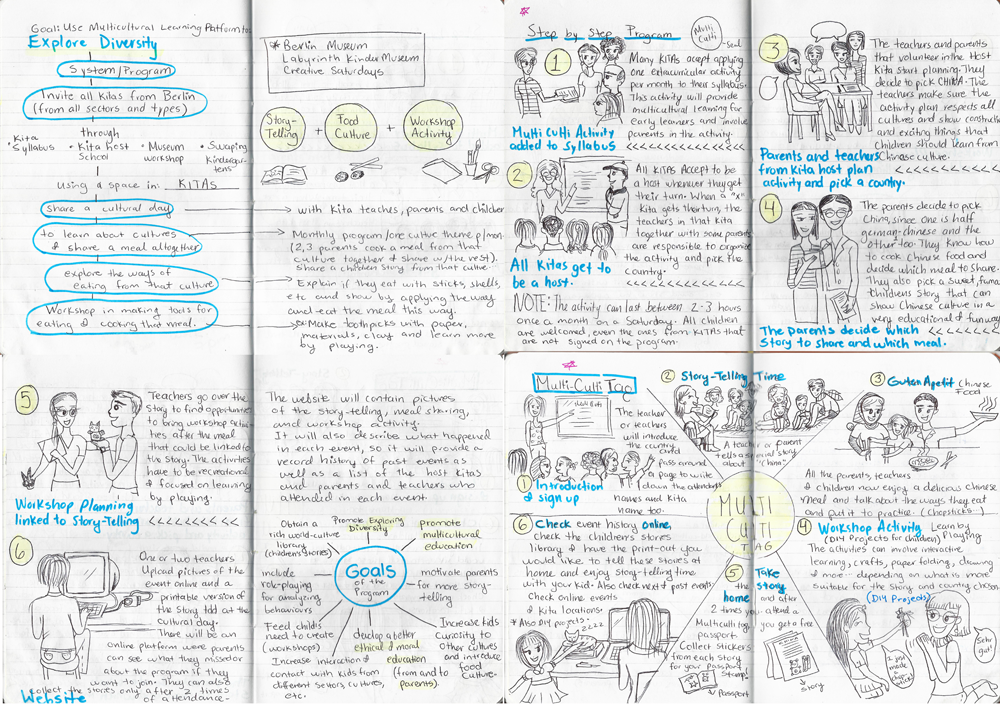 Goal: Use Multicultural Learning Platform to
Explore Diversity
System/Program
Invite all Kitas from Berlin
(from all sectors and types)
through
• Kita Syllabus
• Kita host School
• Museum workshop
• Swaping Kindergartens
using a space in: KITAs
share a cultural day
to learn about cultures
& share a meal altogether
explore the ways of
eating from that culture
Workshop in making tools for
eating & cooking that meal.
* Berlin Museum
Labyrinth KinderMuseum
Creative Saturdays
Story-Telling + Food Culture + Workshop Activity
with Kita teaches, parents and childrer
Monthly program/one culture theme p/mon.
(2,3 parents cook a meal from that
culture together & share w/the rest).
Share a children story from that culture.
Explain if they eat with sticks, shells,
etc and show by applying the way
and eat the meal this way.
Make toothpicks with paper,
materials, clay and learn more
by playing.
Step by Step Program
Multi Culti
-seal
1
Many KITAs accept applying
one extracurricular activity
per month to their syllabus.
This activity will provide
multicultural learning for
early learners and involve
parents in the activity.
Multi Culti Activity
added to Syllabus
2
All KITAS Accept to be
a host whenever they get
their turn. When a "x"
Kita gets their turn, the
teachers in that kita
together with some parents
are responsible to organize
the activity and pick the
country.
All Kitas get to
be a host.
NOTE: The activity can last between 2-3 hours
once a month on a Saturday. All children
are welcomed, even the ones from KITAs that
are not signed on the program.
3
The teachers and parents
that volunteer in the Host
Kita start planning. They
decide to pick CHINA. The
teachers make sure the
activity plan respects all
cultures and show constructi
and exciting things that
children should learn from
Chinese culture.
Parents and teachers
from Kita host plan
activity and pick a country.
4
The parents decide to pick
China, since one is half
german-chinese and the
other too. They know how
to cook Chinese food and
decide which meal to share.
They also pick a sweet, fama
Childrens Story that can
show Chinese culture in a
very educational & fun way
The parents decide which
Story to share and which meal.
5
Teachers go over the
story to find opportunities
to bring workshop activi-
ties after the meal
that could be linked to
the story. The activities
have to be recreational
& focused on learning
by playing.
Workshop Planning
linked to Story-Telling
6
One or two teachers
Upload pictures of the
event online and a
printable version of
the Story told at the
cultural day.
There will be an
online platform were parents
can see what they missed or
about the program if they
want to join. They can also
collect the stories only after 2 times
of attendance-
Website
The website will contain pictures
of the story-telling, meal sharing,
and workshop activity.
It will also describe what happened
in each event, so it will provide a
record history of past events as
well as a list of the host Kitas
and parents and teachers who
attended in each event.
Goals
of the
Program
Obtain a
rich world-culture
library
(children stories)
Promote Exploring
Diversity
promote
multicultural
education
include
role-playing
for analyzing
behaviours
motivate parents
for more Story-
telling
Feed childs
need to create
(workshops)
Increase interaction &
contact with kids from
different sectors, cultures,
etc.
develop a better
ethical & moral
education
(from and to
parents).
Increase kids
curiosity to
other cultures
and introduce
food
Culture-
Multi-Culti Tag
The teacher
or teachers
will introduce
the country
and
pass around
a page to write
down the attendants
names and Kita
name too.
1 Introduction
& sign up
2 Story-Telling Time
A teacher or parent
tells a special story
about "China".
3 Guten Apetit Chinese
Food
All the parents, teachers
& children now enjoy a delicious Chinese
meal and talk about the ways they eat
and put it to practice. (chopsticks..)
MULTI
CULTI
TAG
4 Workshop Activity Learn by
(DIY Projects for children) Playing
The activities can involve interactive
learning, crafts, paper folding, drawing
& more... depending on what is more
suitable for the story and country chosen
(DIY Projects)
I just made chopsticks!
Sehr gut!
5 Take
the story
home and after
2 times you attend a
Multiculti tag, you get a free
passport
Collect stickers
from each story
for your passport
Stamp!
Passport
story
6 Check event history online,
check the childrens stories
library & have the print-out you
would like to tell these stories at
home and enjoy story-telling time
with your kid. Also check next & past events.
Check online events
& Kita locations.
* Also DIY projects